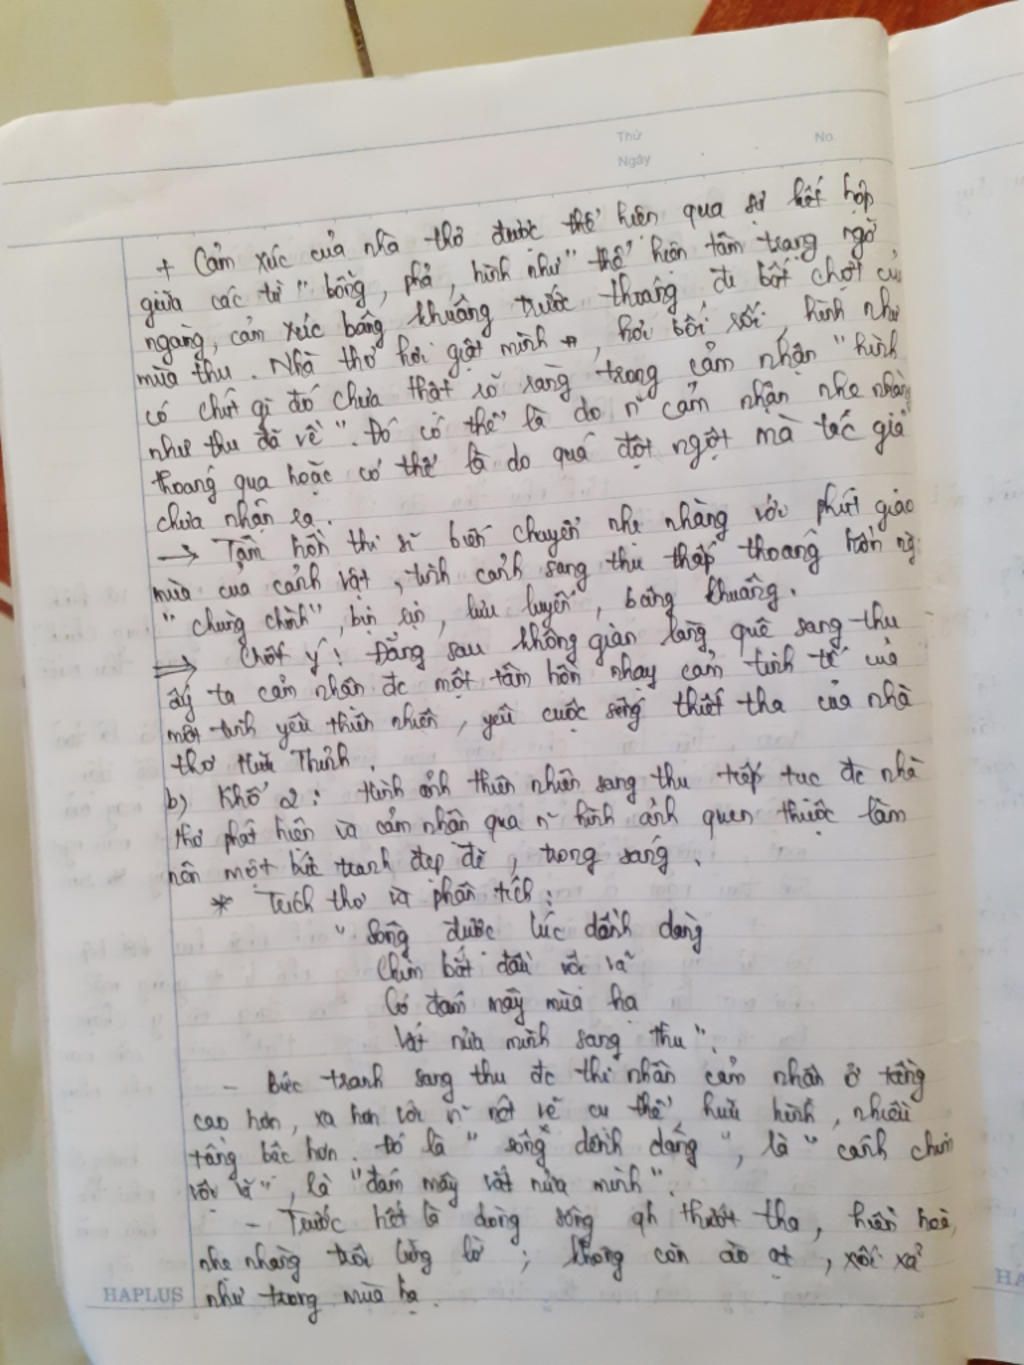 Thứ No.
Ngày
+ Cảm xúc của nhà thơ được thể hiện qua sự kết hợp
giữa các từ " bỗng, phả, hình như " thể hiện tâm trạng ngỡ
ngàng, cảm xúc bâng khuâng trước thoáng đi bất chợt của
mùa thu. Nhà thơ hơi giật mình, hơi bối rối, hình như
có chút gì đó chưa thật rõ ràng trong cảm nhận " hình
như thu đã về ". Đó có thể là do n~ cảm nhận nhẹ nhàng
thoáng qua hoặc có thể là do quá đột ngột mà tác giả
chưa nhận ra.
→ Tâm hồn thi sĩ biến chuyển nhẹ nhàng với phút giao
mùa của cảnh vật, tình cảnh sang thu thấp thoáng hồn ng
" chùng chình ", bịn rịn, lưu luyến, bâng khuâng.
⇒ Chốt ý: Đằng sau không gian làng quê sang thu
ấy ta cảm nhận đc một tâm hồn nhạy cảm tinh tế của
một tình yêu thiên nhiên, yêu cuộc sống thiết tha của nhà
thơ Hữu Thỉnh.
b) Khổ 2: Hình ảnh thiên nhiên sang thu tiếp tục đc nhà
thơ phát hiện và cảm nhận qua n~ hình ảnh quen thuộc làm
nên một bức tranh đẹp đẽ, trong sáng.
* Trích thơ và phân tích:
" Sông được lúc dềnh dàng
Chim bắt đầu vội vã
Có đám mây mùa hạ
Vắt nửa mình sang thu ".
- Bức tranh sang thu đc thi nhân cảm nhận ở tầng
cao hơn, xa hơn với n~ nét vẽ cụ thể, hữu hình, nhiều
tầng bậc hơn. Đó là " sông dềnh dàng ", là " cánh chim
vội vã ", là " đám mây vắt nửa mình ".
- Trước hết là dòng sông qh thướt tha, hiền hoà,
nhẹ nhàng trôi lững lờ; không còn ào ạt, xối xả
như trong mùa hạ.
HAPLUS